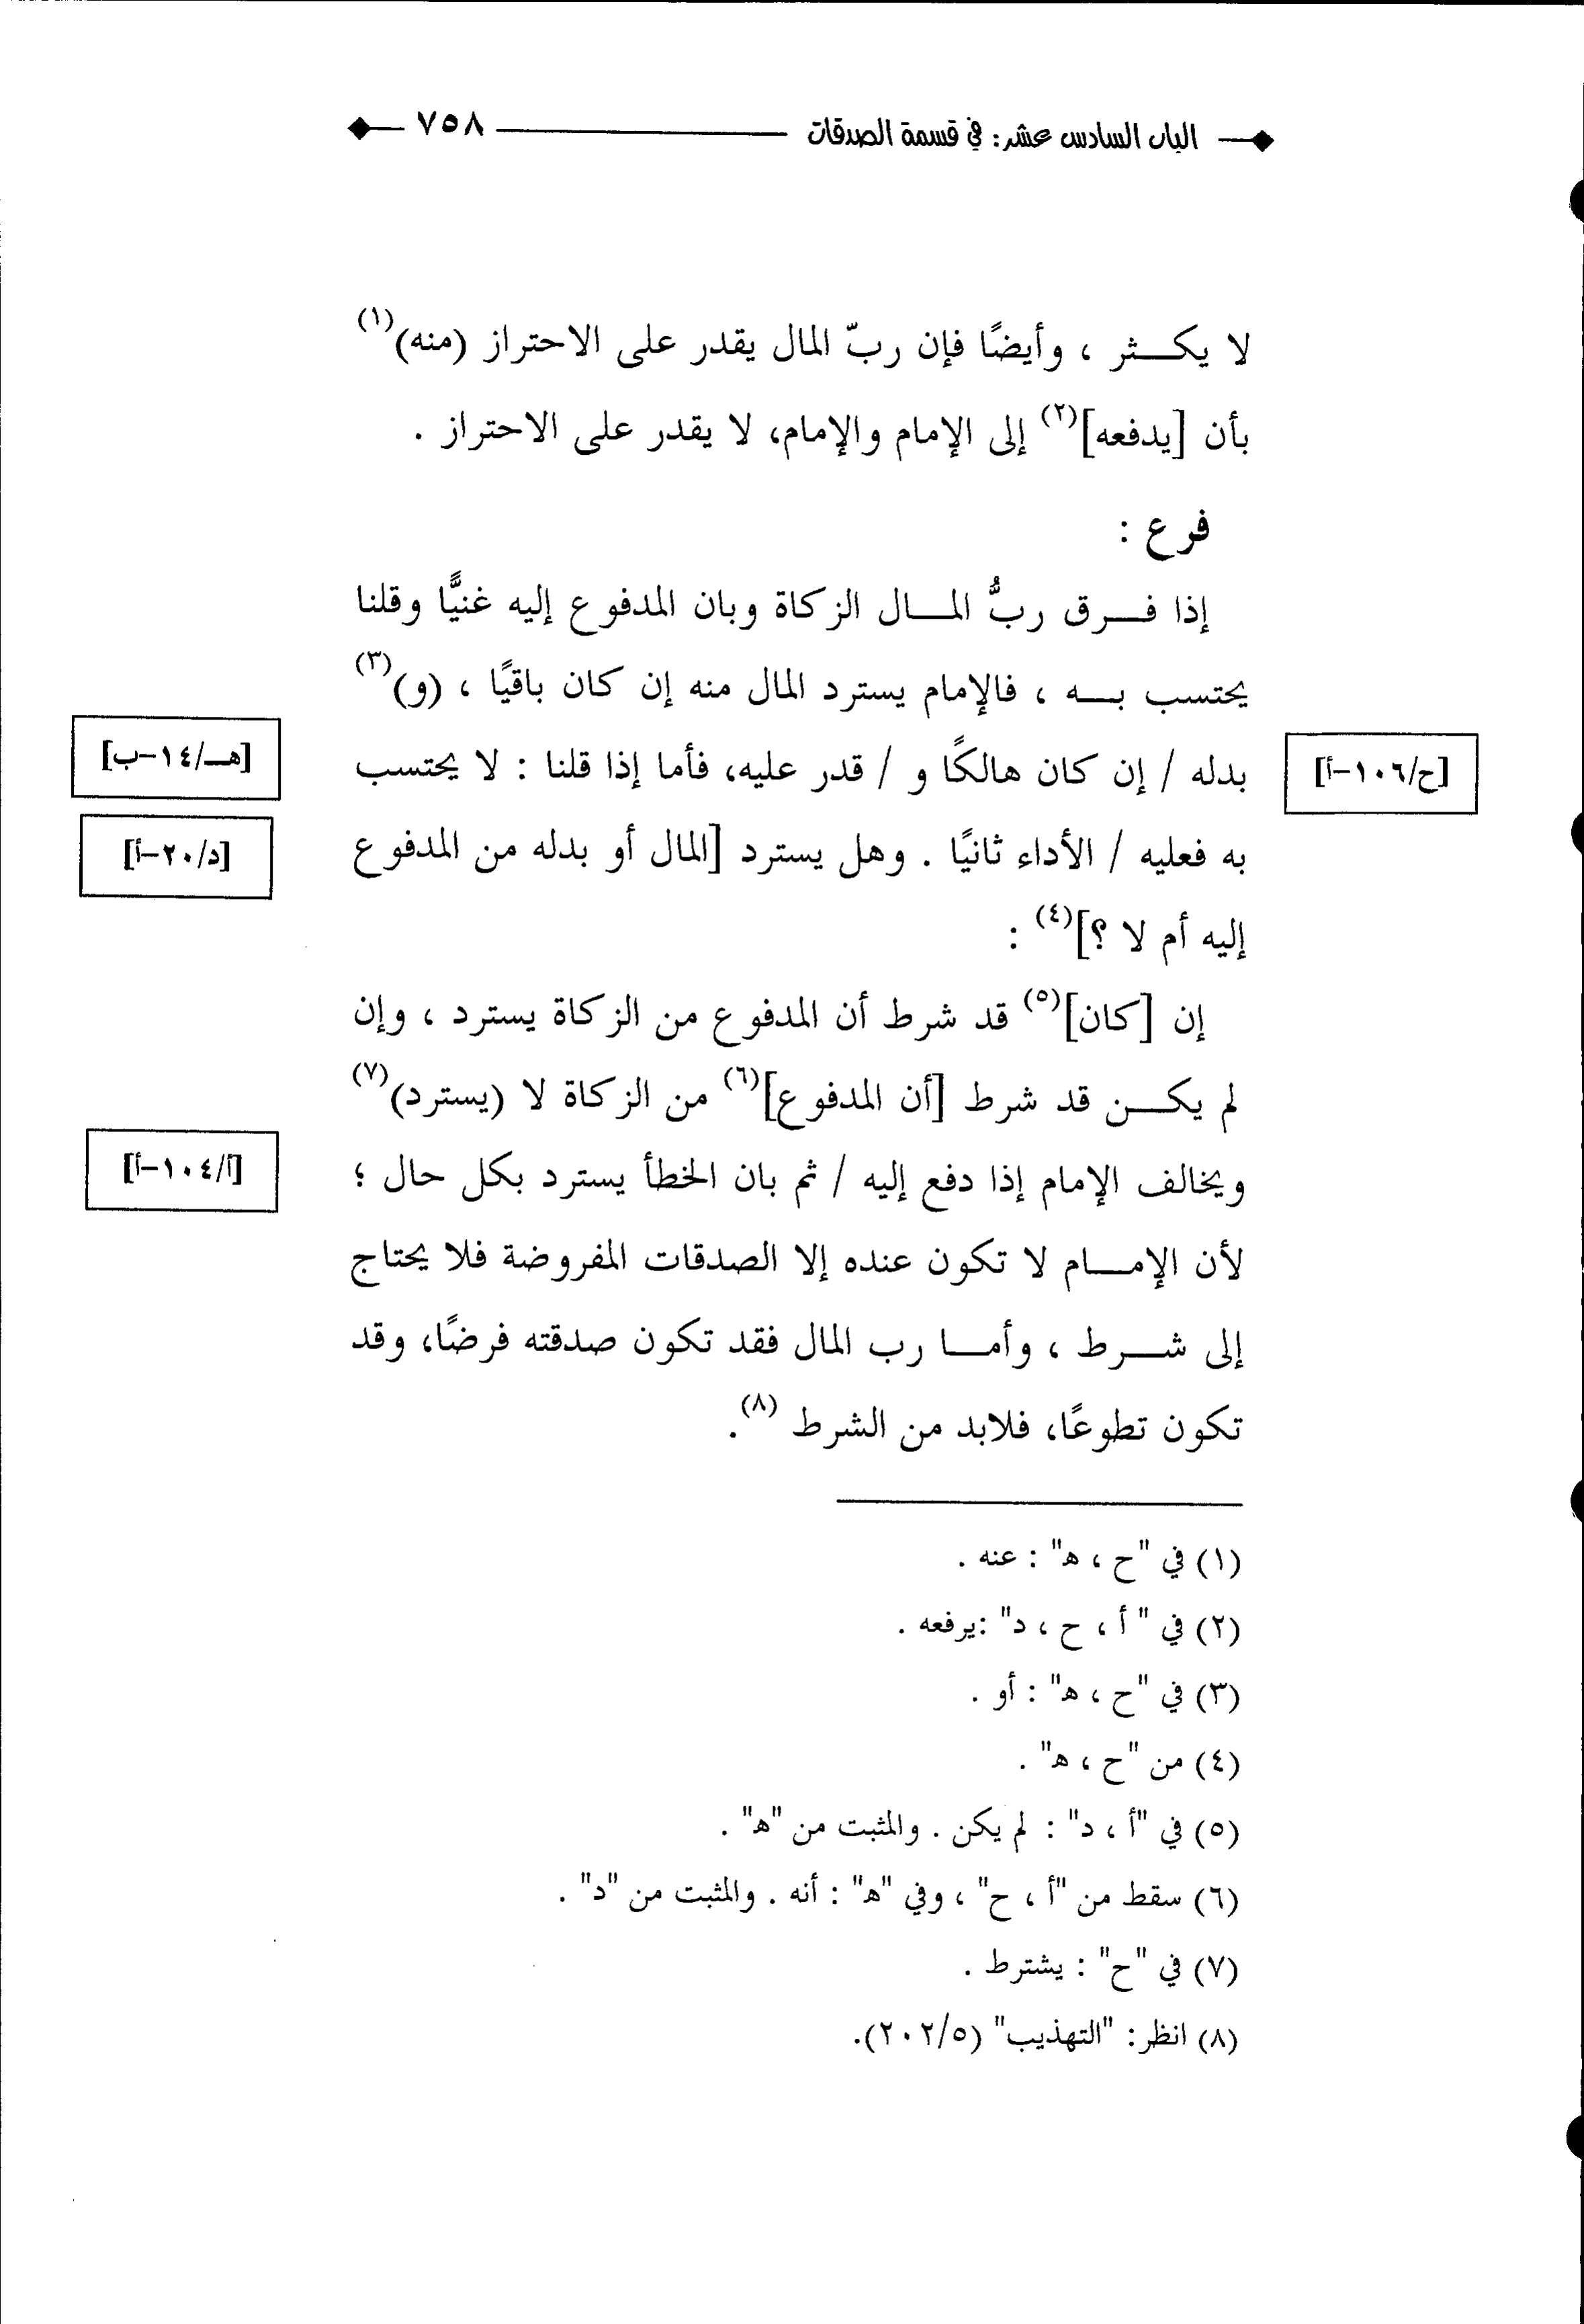 الباب السادس عشر: في قسمة الصدقات ٧٥٨
لا يكـــثر ، وأيضًا فإن ربّ المال يقدر على الاحتراز (منه)(١)
بأن [يدفعه](٢) إلى الإمام والإمام، لا يقدر على الاحتراز .
فرع :
إذا فـــرق ربُّ المـــال الزكاة وبان المدفوع إليه غنيًّا وقلنا
يحتسب بـــه ، فالإمام يسترد المال منه إن كان باقيًا ، (و)(٣)
بدله / إن كان هالكًا و / قدر عليه، فأما إذا قلنا : لا يحتسب
[ح/١٠٦-أ]
[هـ/١٤-ب]
به فعليه / الأداء ثانيًا . وهل يسترد [المال أو بدله من المدفوع
[د/٢٠-أ]
إليه أم لا ؟](٤) :
إن [كان](٥) قد شرط أن المدفوع من الزكاة يسترد ، وإن
لم يكـــن قد شرط [أن المدفوع](٦) من الزكاة لا (يسترد)(٧)
ويخالف الإمام إذا دفع إليه / ثم بان الخطأ يسترد بكل حال ؛
[أ/١٠٤-أ]
لأن الإمـــام لا تكون عنده إلا الصدقات المفروضة فلا يحتاج
إلى شـــرط ، وأمـــا رب المال فقد تكون صدقته فرضًا، وقد
تكون تطوعًا، فلابد من الشرط (٨).
(١) في "ح ، ه" : عنه .
(٢) في " أ ، ح ، د" :يرفعه .
(٣) في "ح ، ه" : أو .
(٤) من "ح ، ه" .
(٥) في "أ ، د" : لم يكن . والمثبت من "ه" .
(٦) سقط من "أ ، ح" ، وفي "ه" : أنه . والمثبت من "د" .
(٧) في "ح" : يشترط .
(٨) انظر: "التهذيب" (٢٠٢/٥).